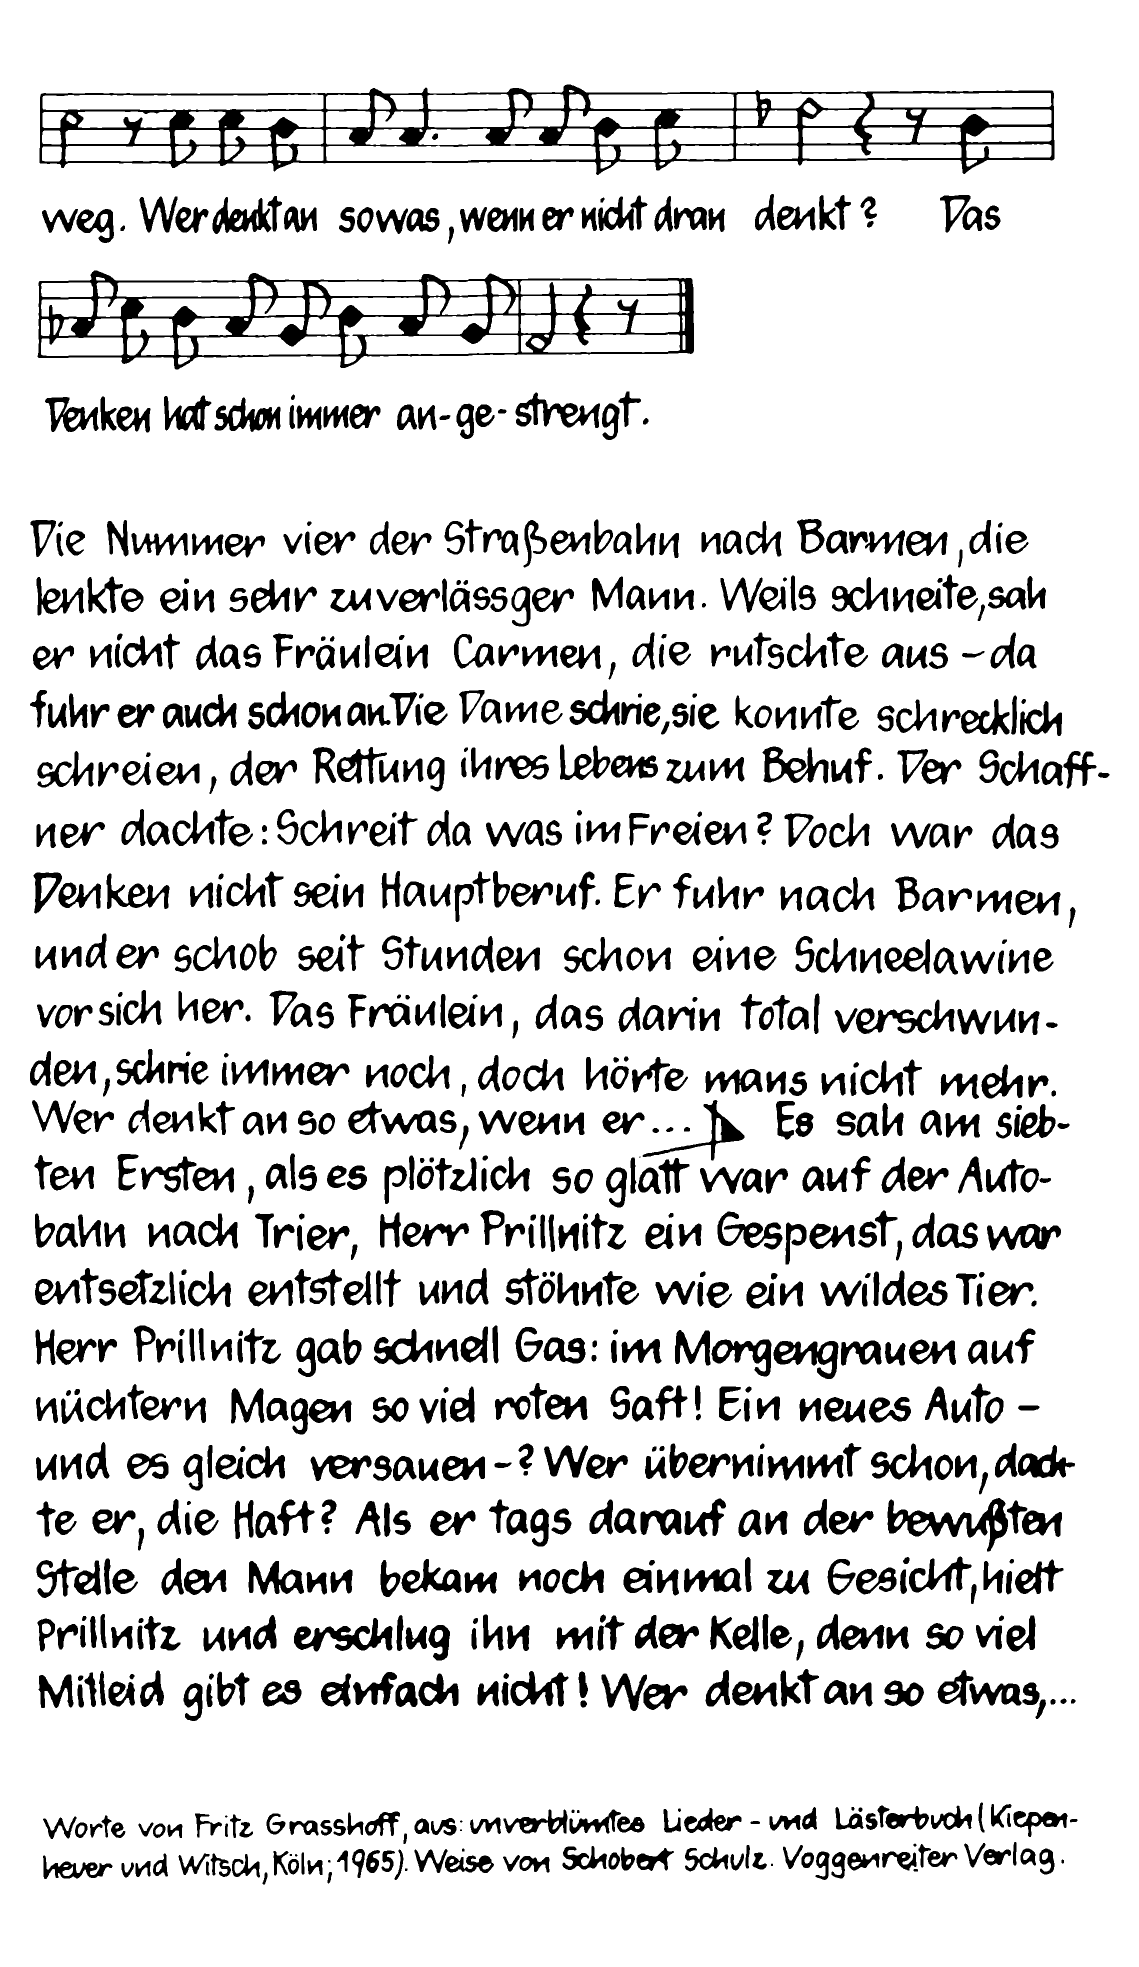 weg. Wer denkt an sowas, wenn er nicht dran denkt? Das
Denken hat schon immer an-ge-strengt.
Die Nummer vier der Straßenbahn nach Barmen, die
lenkte ein sehr zuverlässger Mann. Weils schneite, sah
er nicht das Fräulein Carmen, die rutschte aus – da
fuhr er auch schon an. Die Dame schrie, sie konnte schrecklich
schreien, der Rettung ihres Lebens zum Behuf. Der Schaff-
ner dachte: Schreit da was im Freien? Doch war das
Denken nicht sein Hauptberuf. Er fuhr nach Barmen,
und er schob seit Stunden schon eine Schneelawine
vor sich her. Das Fräulein, das darin total verschwun-
den, schrie immer noch, doch hörte mans nicht mehr.
Wer denkt an so etwas, wenn er... Es sah am sieb-
ten Ersten, als es plötzlich so glatt war auf der Auto-
bahn nach Trier, Herr Prillnitz ein Gespenst, das war
entsetzlich entstellt und stöhnte wie ein wildes Tier.
Herr Prillnitz gab schnell Gas: im Morgengrauen auf
nüchtern Magen so viel roten Saft! Ein neues Auto –
und es gleich versauen –? Wer übernimmt schon, dach-
te er, die Haft? Als er tags darauf an der bewußten
Stelle den Mann bekam noch einmal zu Gesicht, hielt
Prillnitz und erschlug ihn mit der Kelle, denn so viel
Mitleid gibt es einfach nicht! Wer denkt an so etwas,...
Worte von Fritz Grasshoff, aus: unverblümtes Lieder - und Lästerbuch (Kiepen-
heuer und Witsch, Köln; 1965). Weise von Schobert Schulz. Voggenreiter Verlag.